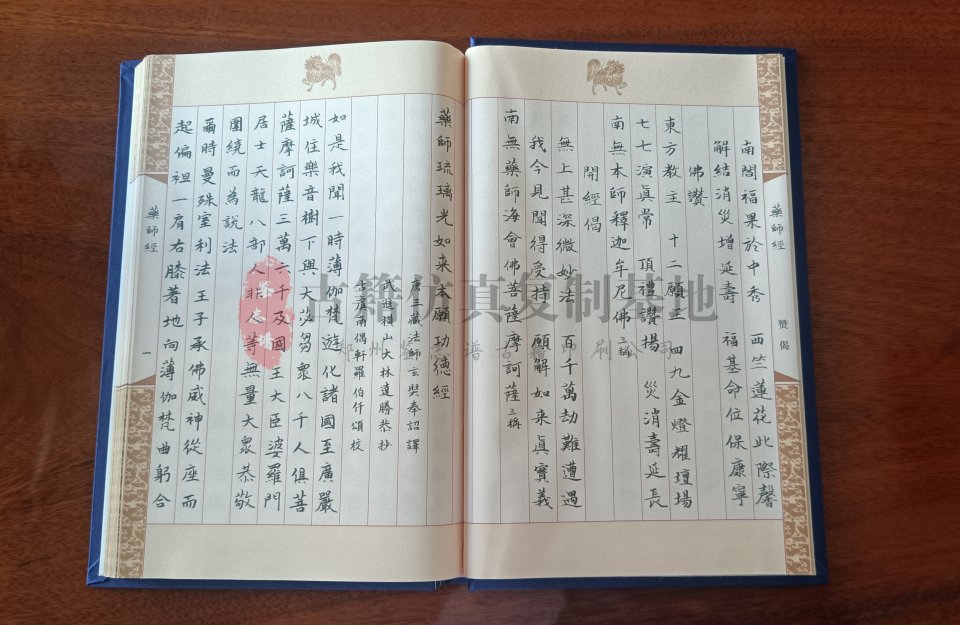 南閻福果於中秀 西竺蓮花此際馨
解結消災增延壽 福基命位保康寧
佛讚
東方教主 十二願王 四九金燈耀壇場
七七演真常 頂禮讚揚 災消壽延長
南無本師釋迦牟尼佛三稱
開經偈
無上甚深微妙法 百千萬劫難遭遇
我今見聞得受持 願解如来真實義
南無藥師海會佛菩薩摩訶薩三稱
藥師經
贊偈
藥師琉璃光如来本願功德經
唐三藏法師玄奘奉詔譯
武進橫山大林達勝恭抄
古虞南偶軒羅伯仟頌校
如是我聞一時薄伽梵遊化諸國至廣嚴
城住樂音樹下與大苾芻眾八千人俱菩
薩摩訶薩三萬六千及國王大臣婆羅門
居士天龍八部人非人等無量大眾恭敬
圍繞而為說法
爾時曼殊室利法王子承佛威神從座而
起偏袒一肩右膝著地向薄伽梵曲躬合
藥師經
一
古籍仿真复制基地